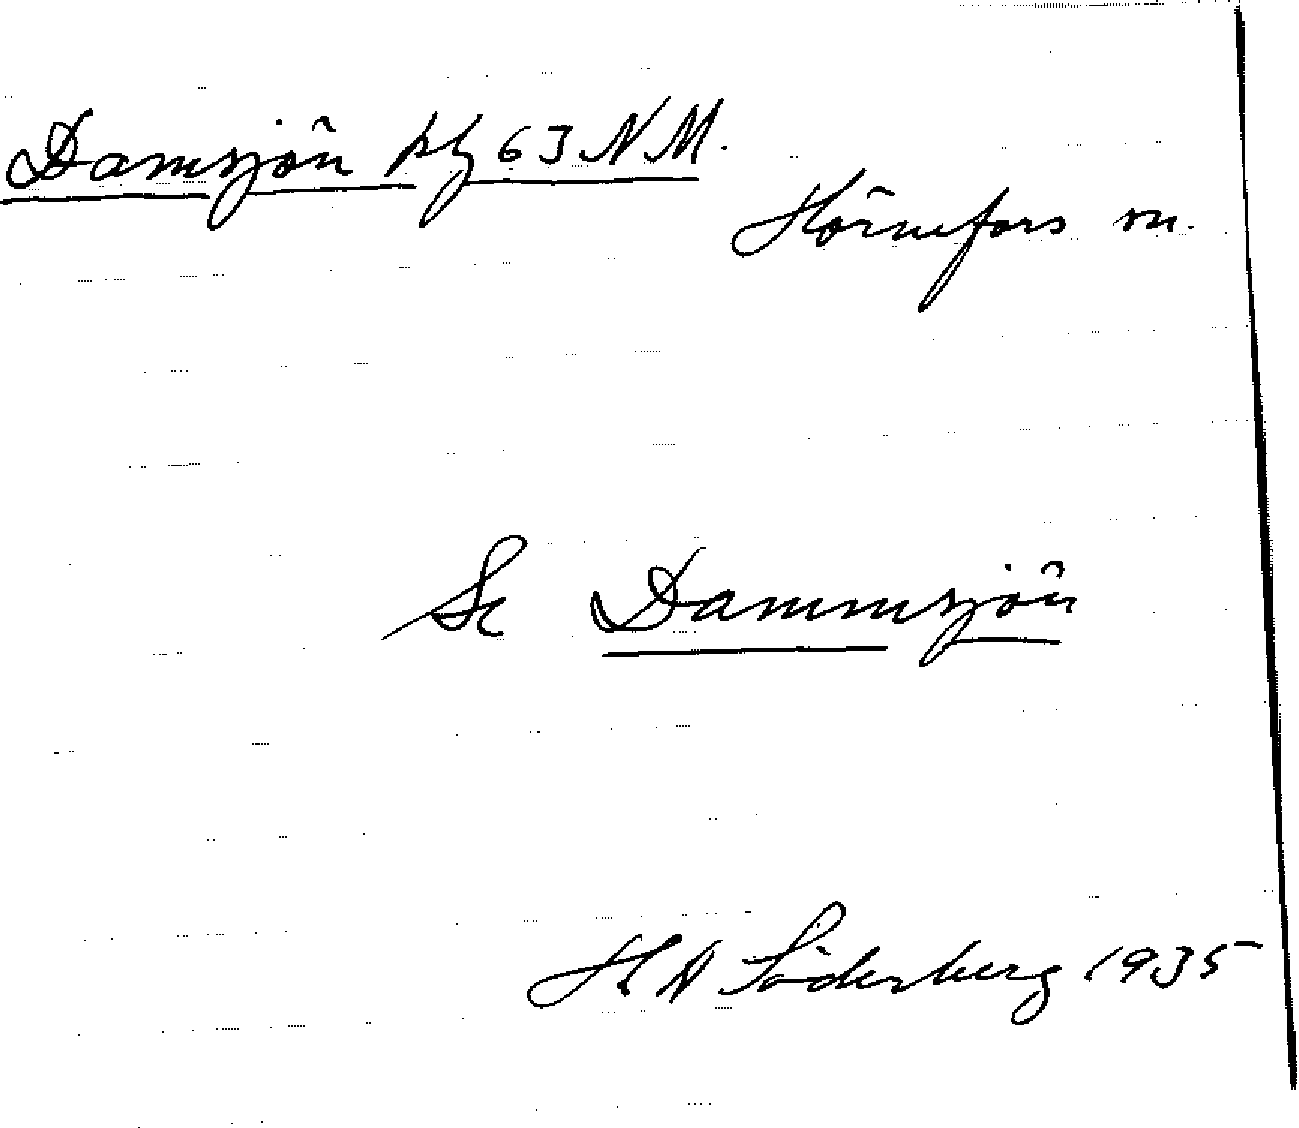 Damsjön kbl 63 NM.
Hörnefors m.
Se Dammsjön
H N Söderberg 1935